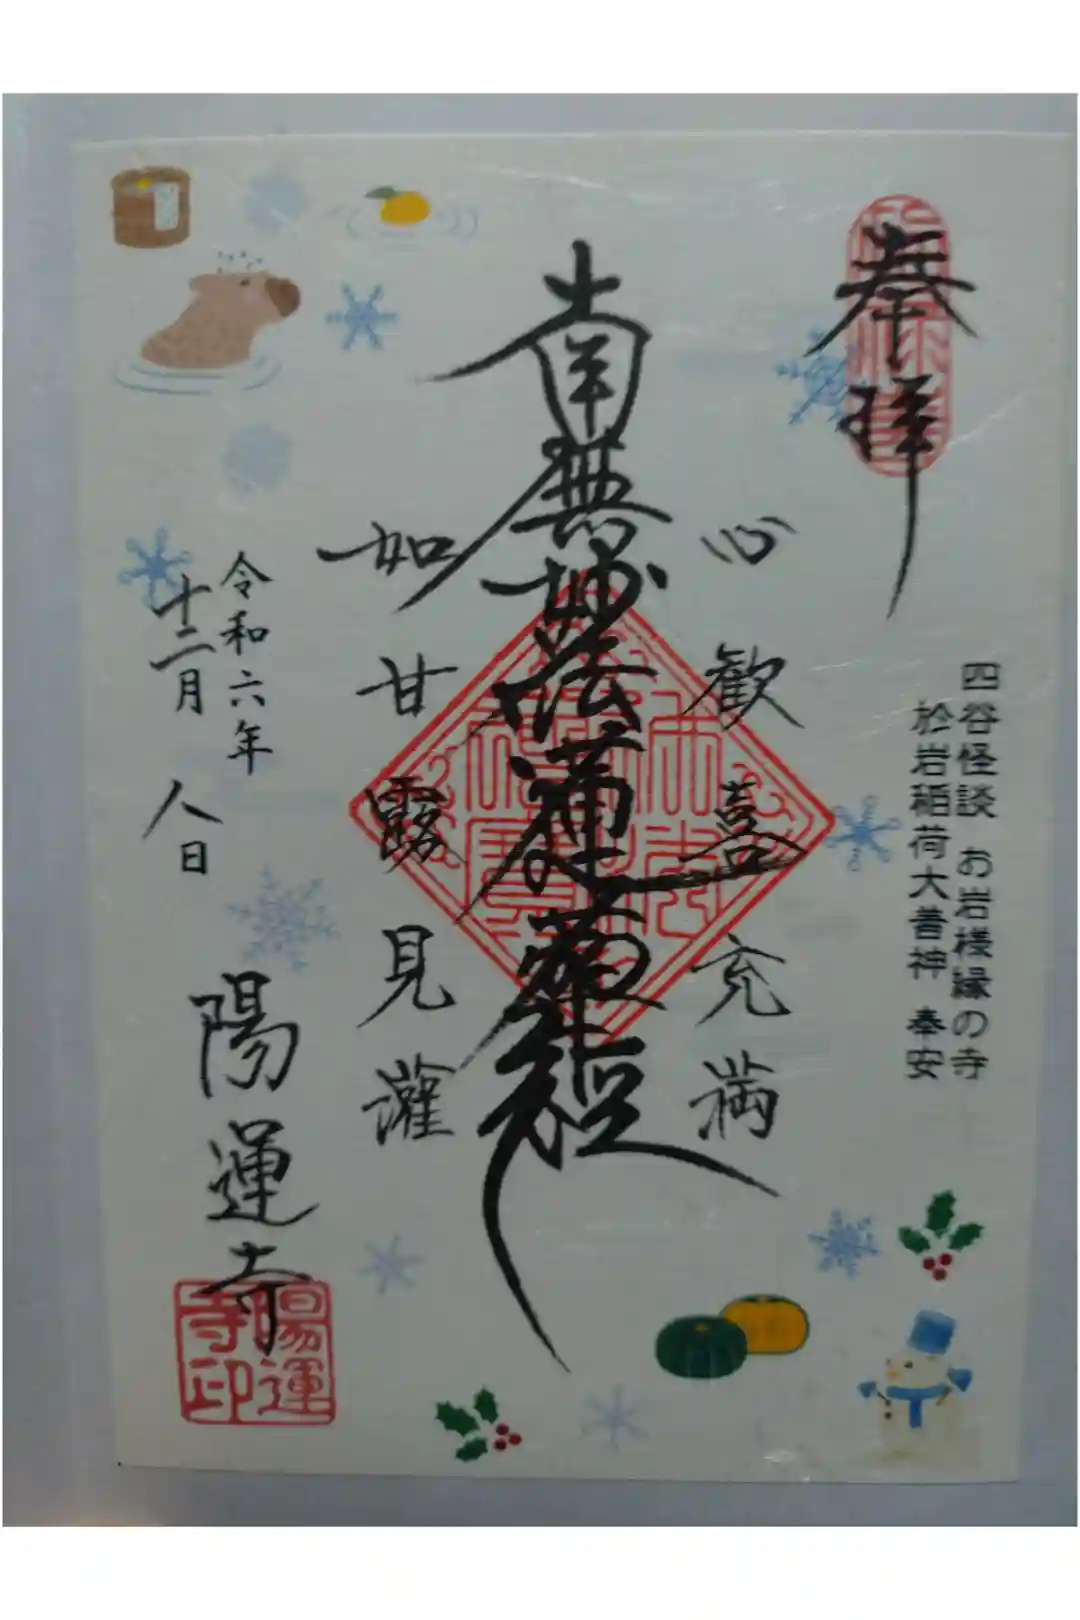 奉拝
四谷怪談 お岩様縁の寺
於岩稲荷大善神 奉安
心歓喜充満
南無妙法蓮華経
如甘露見灌
令和六年
十二月
八日
陽運寺
陽運
寺印